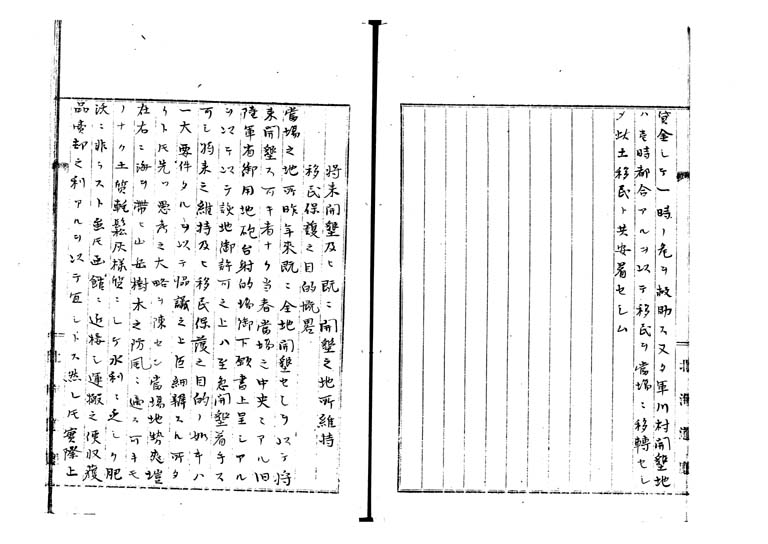 貸金シテ一時ノ危ヲ救助ス又タ軍川村開墾地
ハ其時都合アルヲ以テ移民ヲ當場ニ移轉セシ
メ此土移民ト共安着セシム
将来開墾及ヒ既ニ開墾之地所維持
移民保護之目的概畧
當場之地所昨年来既ニ全地開墾セシヲ以テ将
来開墾ス可キ者ナク当春當場之中央ニアル旧
陸軍省御用地砲台射的場御下願書上呈シアル
ヲ以テ該地御許可之上ハ至急開墾着手ス
可シ将来之維持及ヒ移民保護之目的ノ如キハ
一大要件タルヲ以テ協議之上巨細録スル所タ
リト氏先ツ愚考之大略ヲ陳セン當場地勢爽塏
左右ニ海ヲ帯ヒ山岳樹木之防風ニ適ス可キモ
ノナク土質軽鬆灰様質ニシテ水利ニ乏シク肥
沃ニ非ラスト虽氏函館ニ近接シ運搬之便収獲
品賣却之利アルヲ以テ宜シトス然レ氏實際上
北海道廳